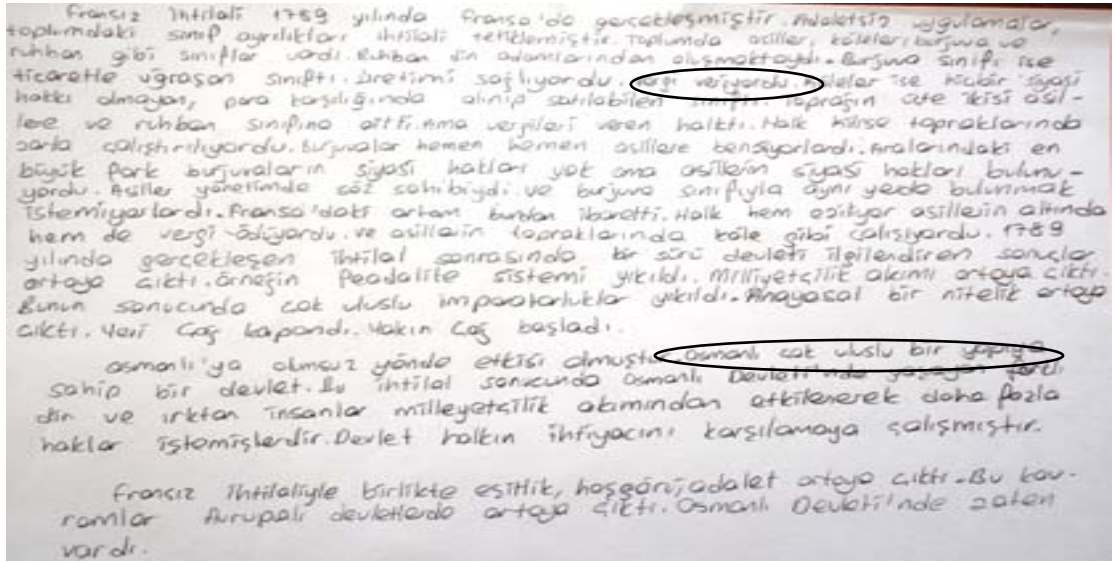 Fransız İhtilali 1789 yılında Fransa'da gerçekleşmiştir. Adaletsiz uygulamalar,
toplumdaki sınıf ayrılıkları ihtilali tetiklemiştir. Toplumda asiller, köleler, burjuva ve
ruhban gibi sınıflar vardı. Ruhban din adamlarından oluşmaktaydı. Burjuva sınıfı ise
ticaretle uğraşan sınıftı. Üretimi sağlıyordu. Vergi veriyordu. Köleler ise hiçbir siyasi
hakkı olmayan, para karşılığında alınıp satılabilen sınıftı. Toprağın üçte ikisi asil-
lere ve ruhban sınıfına aitti. Ama vergileri veren halktı. Halk kilise topraklarında
zorla çalıştırılıyordu. Burjuvalar hemen hemen asillere benziyorlardı. Aralarındaki en
büyük fark burjuvaların siyasi hakları yok ama asillerin siyasi hakları bulunu-
yordu. Asiller yönetimde söz sahibiydi. ve burjuva sınıfıyla aynı yerde bulunmak
istemiyorlardı. Fransa'daki ortam bundan ibaretti. Halk hem eziliyor asillerin altında
hem de vergi ödüyordu. ve asillerin topraklarında köle gibi çalışıyordu. 1789
yılında gerçekleşen ihtilal sonrasında bir sürü devleti ilgilendiren sonuçlar
ortaya çıktı. Örneğin Feodalite sistemi yıkıldı. Milliyetçilik akımı ortaya çıktı.
Bunun sonucunda çok uluslu imparatorluklar yıkıldı. Anayasal bir nitelik ortaya
çıktı. Yeni Çağ kapandı. Yakın Çağ başladı.
Osmanlı'ya olmsuz yönde etkisi olmuştur. Osmanlı çok uluslu bir yapıya
sahip bir devlet. Bu ihtilal sonucunda Osmanlı Devleti'nde yaşayan farklı
din ve ırktan insanlar milleyetçilik akımından etkilenerek daha fazla
haklar istemişlerdir. Devlet halkın ihtiyacını karşılamaya çalışmıştır.
Fransız İhtilaliyle birlikte eşitlik, hoşgörü, adalet ortaya çıktı. Bu kav-
ramlar Avrupalı devletlerde ortaya çıktı. Osmanlı Devleti'nde zaten
vardı.